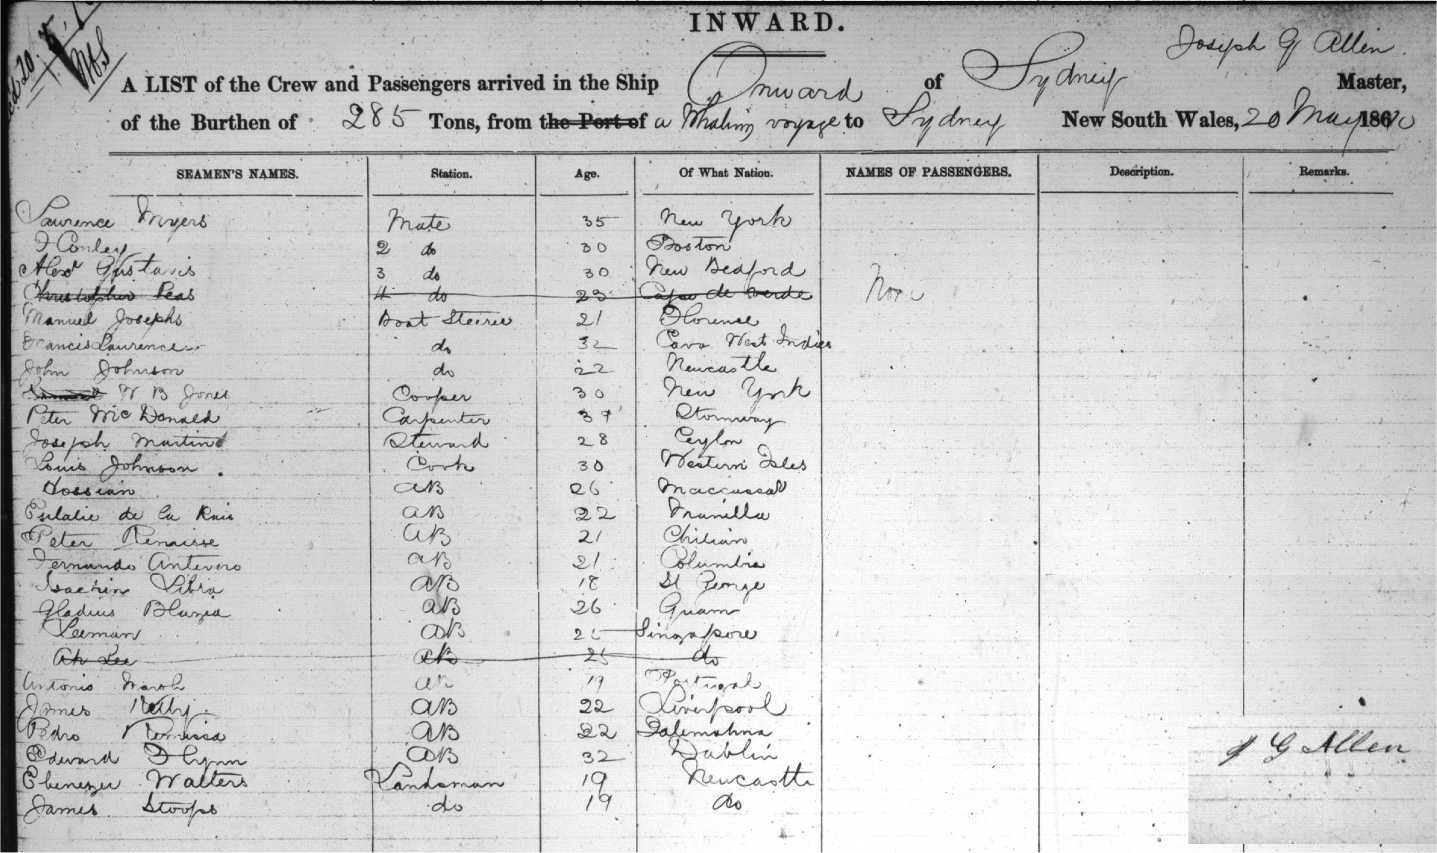 INWARD.
Joseph G Allen
A LIST of the Crew and Passengers arrived in the Ship Onward of Sydney Master,
of the Burthen of 285 Tons, from the Port of a Whaling voyage to Sydney New South Wales, 20 May 1860
SEAMEN'S NAMES. Station. Age. Of What Nation. NAMES OF PASSENGERS. Description. Remarks.
Laurence Myers Mate 35 New York
Conley 2 do 30 Boston
Alexr Gustavis 3 do 30 New Bedford
Christopher Peas 4 do 23 Cape de Verde None
Manuel Josephs Boat Steerer 21 Florense
Francis Laurence do 32 West Indies
John Johnson do 22 Newcastle
W B Jones Cooper 30 New York
Peter McDonald Carpenter 37 Stornway
Joseph Martin Steward 28 Ceylon
Louis Johnson Cook 30 Western Isles
Hossian AB 26 Maccassar
de la AB 22 Manilla
Peter AB 21 Chilian
Fernando Antevero AB 21 Columbia
AB 18 St George
Gladius AB 26 Guam
Leeman AB Singapore
Ah Lee AB 25 do
Antonio AB 19 Portugal
James AB 22 Liverpool
Pedro AB 22
Edward Flynn AB 32 Dublin
Ebenezer Walters Landsman 19 Newcastle
James Stoops do 19 do
J G Allen